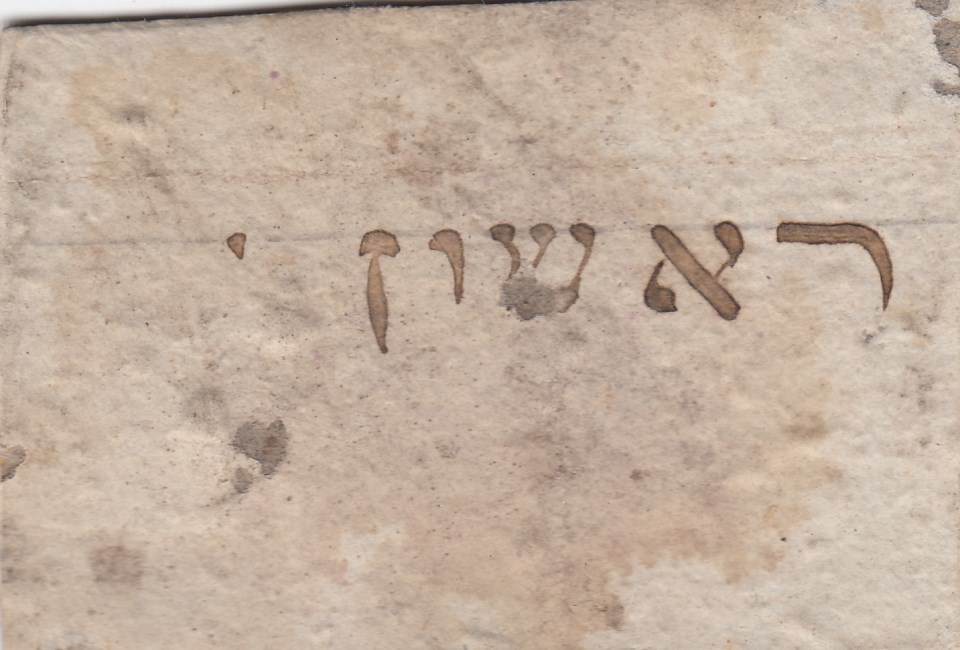 ראשון י